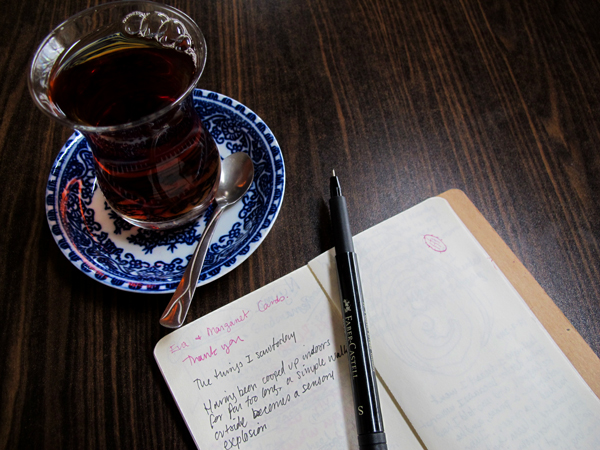 Isa + Margaret Cards.
Thank you
The things I saw today
Having been cooped up indoors
for far too long, a simple walk
outside becomes a sensory
explosion
FABER-CASTELL
S